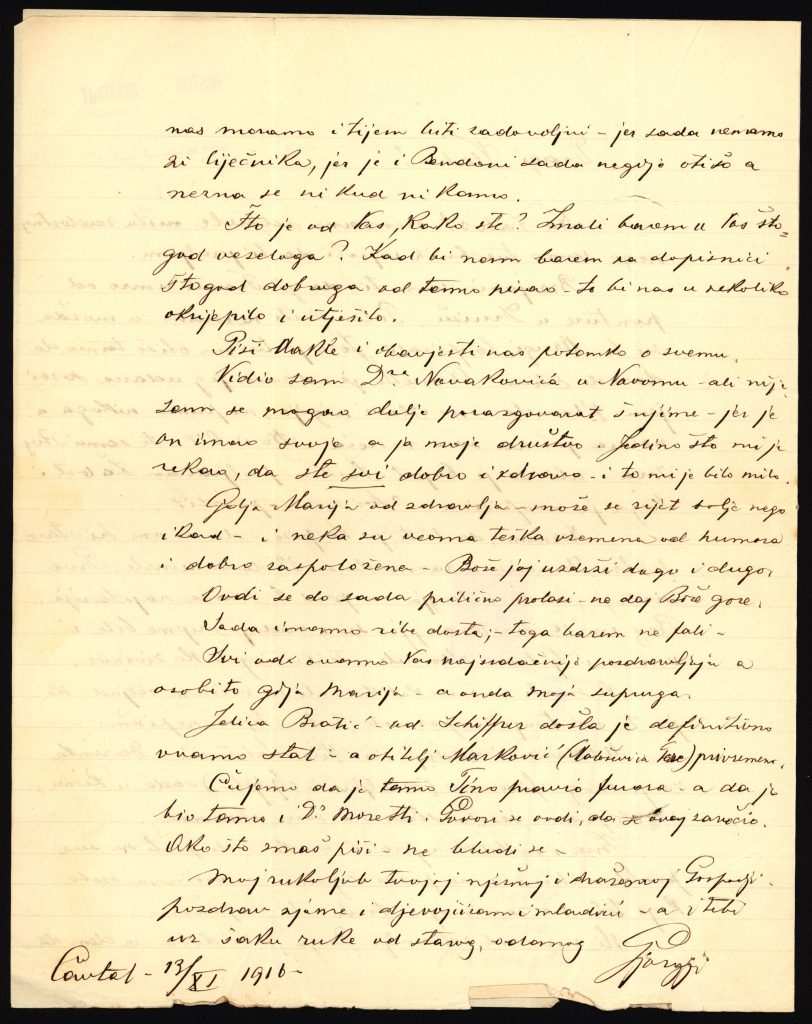 nas moramo i tijem biti zadovoljni - jer sada nemamo
ni liječnika, jer je i Bendoni sada negdje otišo a
nezna se ni kud ni kamo.
Što je od Vas, kako ste? Imali barem u Vas što=
god veseloga? Kad bi nam barem na dopisnici
štogod dobroga od tamo pisao - to bi nas u nekoliko
okrijepilo i utješilo.
Piši dakle i obavjesti nas potanko o svemu.
Vidio sam Dra Novakovića u Navomu - ali nije
sam se mogao dulje porazgovarat š njime - jer je
on imao svoje a ja moje društvo. Jedino što mi je
rekao, da ste svi dobro i zdravo - i to mi je bilo milo.
Gdja Marija od zdravlja - može se rijet bolje nego
ikad - i neka su veoma teška vremena od humora
i dobro raspoložena - Bože joj uzdrži dugo i dugo.
Ovdi se do sada prilično prolazi - ne daj Bože gore.
Sada imamo ribe dosta; - toga barem ne fali -
Svi od ovamo Vas najsrdačnije pozdravljaju a
osobito gdja Marija - a onda moja supruga.
Jelica Bratić - ud. Schiffrer došla je definitivno
vamo stat - a obitelj Marković privremeno.
Čujemo da je tamo Tino pravio furora - a da je
bio tamo i Dr Moretti. Govori se ovdi, da ovaj zaručio.
Ako što znaš piši - ne bludi se -
Moj rukoljub tvojoj nježnoj i dražesnoj Gospodji -
pozdrav njame i djevojčicam i mladiću - a i tebi
uz šaku ruke od starog, odanog
Cavtat - 13/XI 1916 -